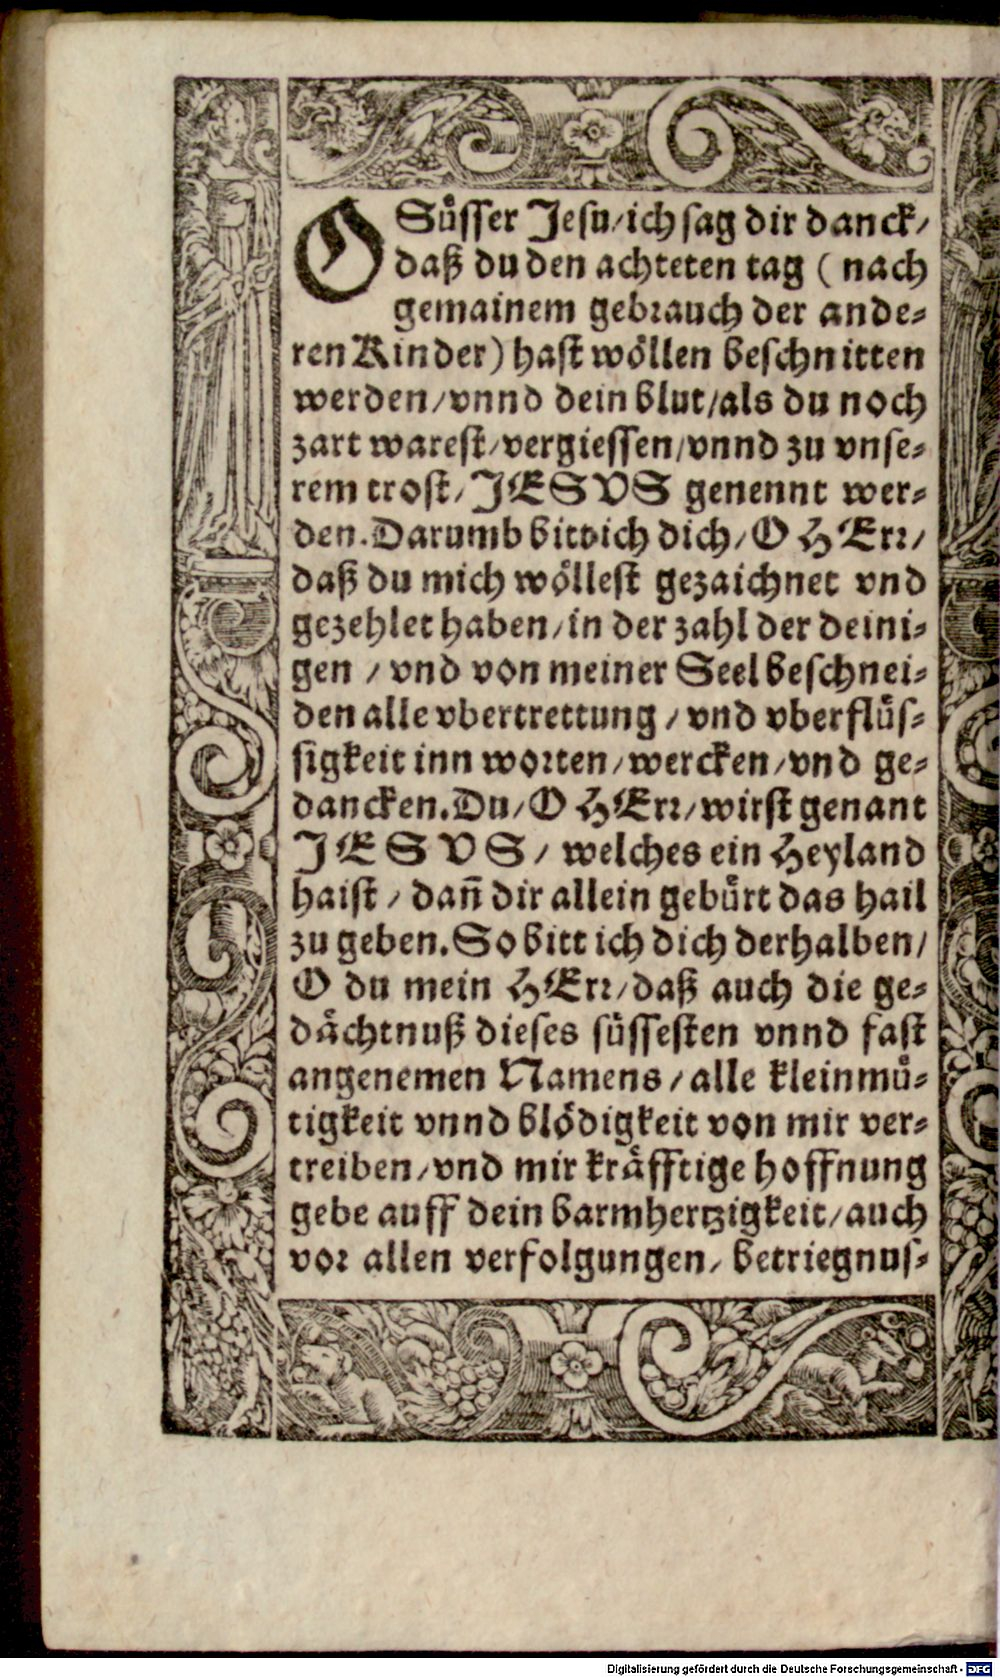 O Süsser Jesu/ich sag dir danck/
daß du den achteten tag (nach
gemainem gebrauch der ande⸗
ren Kinder) hast wöllen beschnitten
werden/vnnd dein blut/als du noch
zart warest/vergiessen/vnnd zu vnse⸗
rem trost/JESVS genennt wer⸗
den. Darumb bitt ich dich/O HErr/
daß du mich wöllest gezaichnet vnd
gezehlet haben/in der zahl der deini⸗
gen / vnd von meiner Seel beschnei⸗
den alle vbertrettung / vnd vberflüs⸗
sigkeit inn worten/wercken/vnd ge⸗
dancken. Du/O HErr/wirst genant
JESVS/ welches ein Heyland
haist / dañ dir allein gebürt das hail
zu geben. So bitt ich dich derhalben/
O du mein HErr/daß auch die ge⸗
dächtnuß dieses süssesten vnnd fast
angenemen Namens/alle kleinmü⸗
tigkeit vnnd blödigkeit von mir ver⸗
treiben/vnd mir kräfftige hoffnung
gebe auff dein barmhertzigkeit/auch
vor allen verfolgungen/ betriegnus⸗
Digitalisierung gefördert durch die Deutsche Forschungsgemeinschaft - DFG